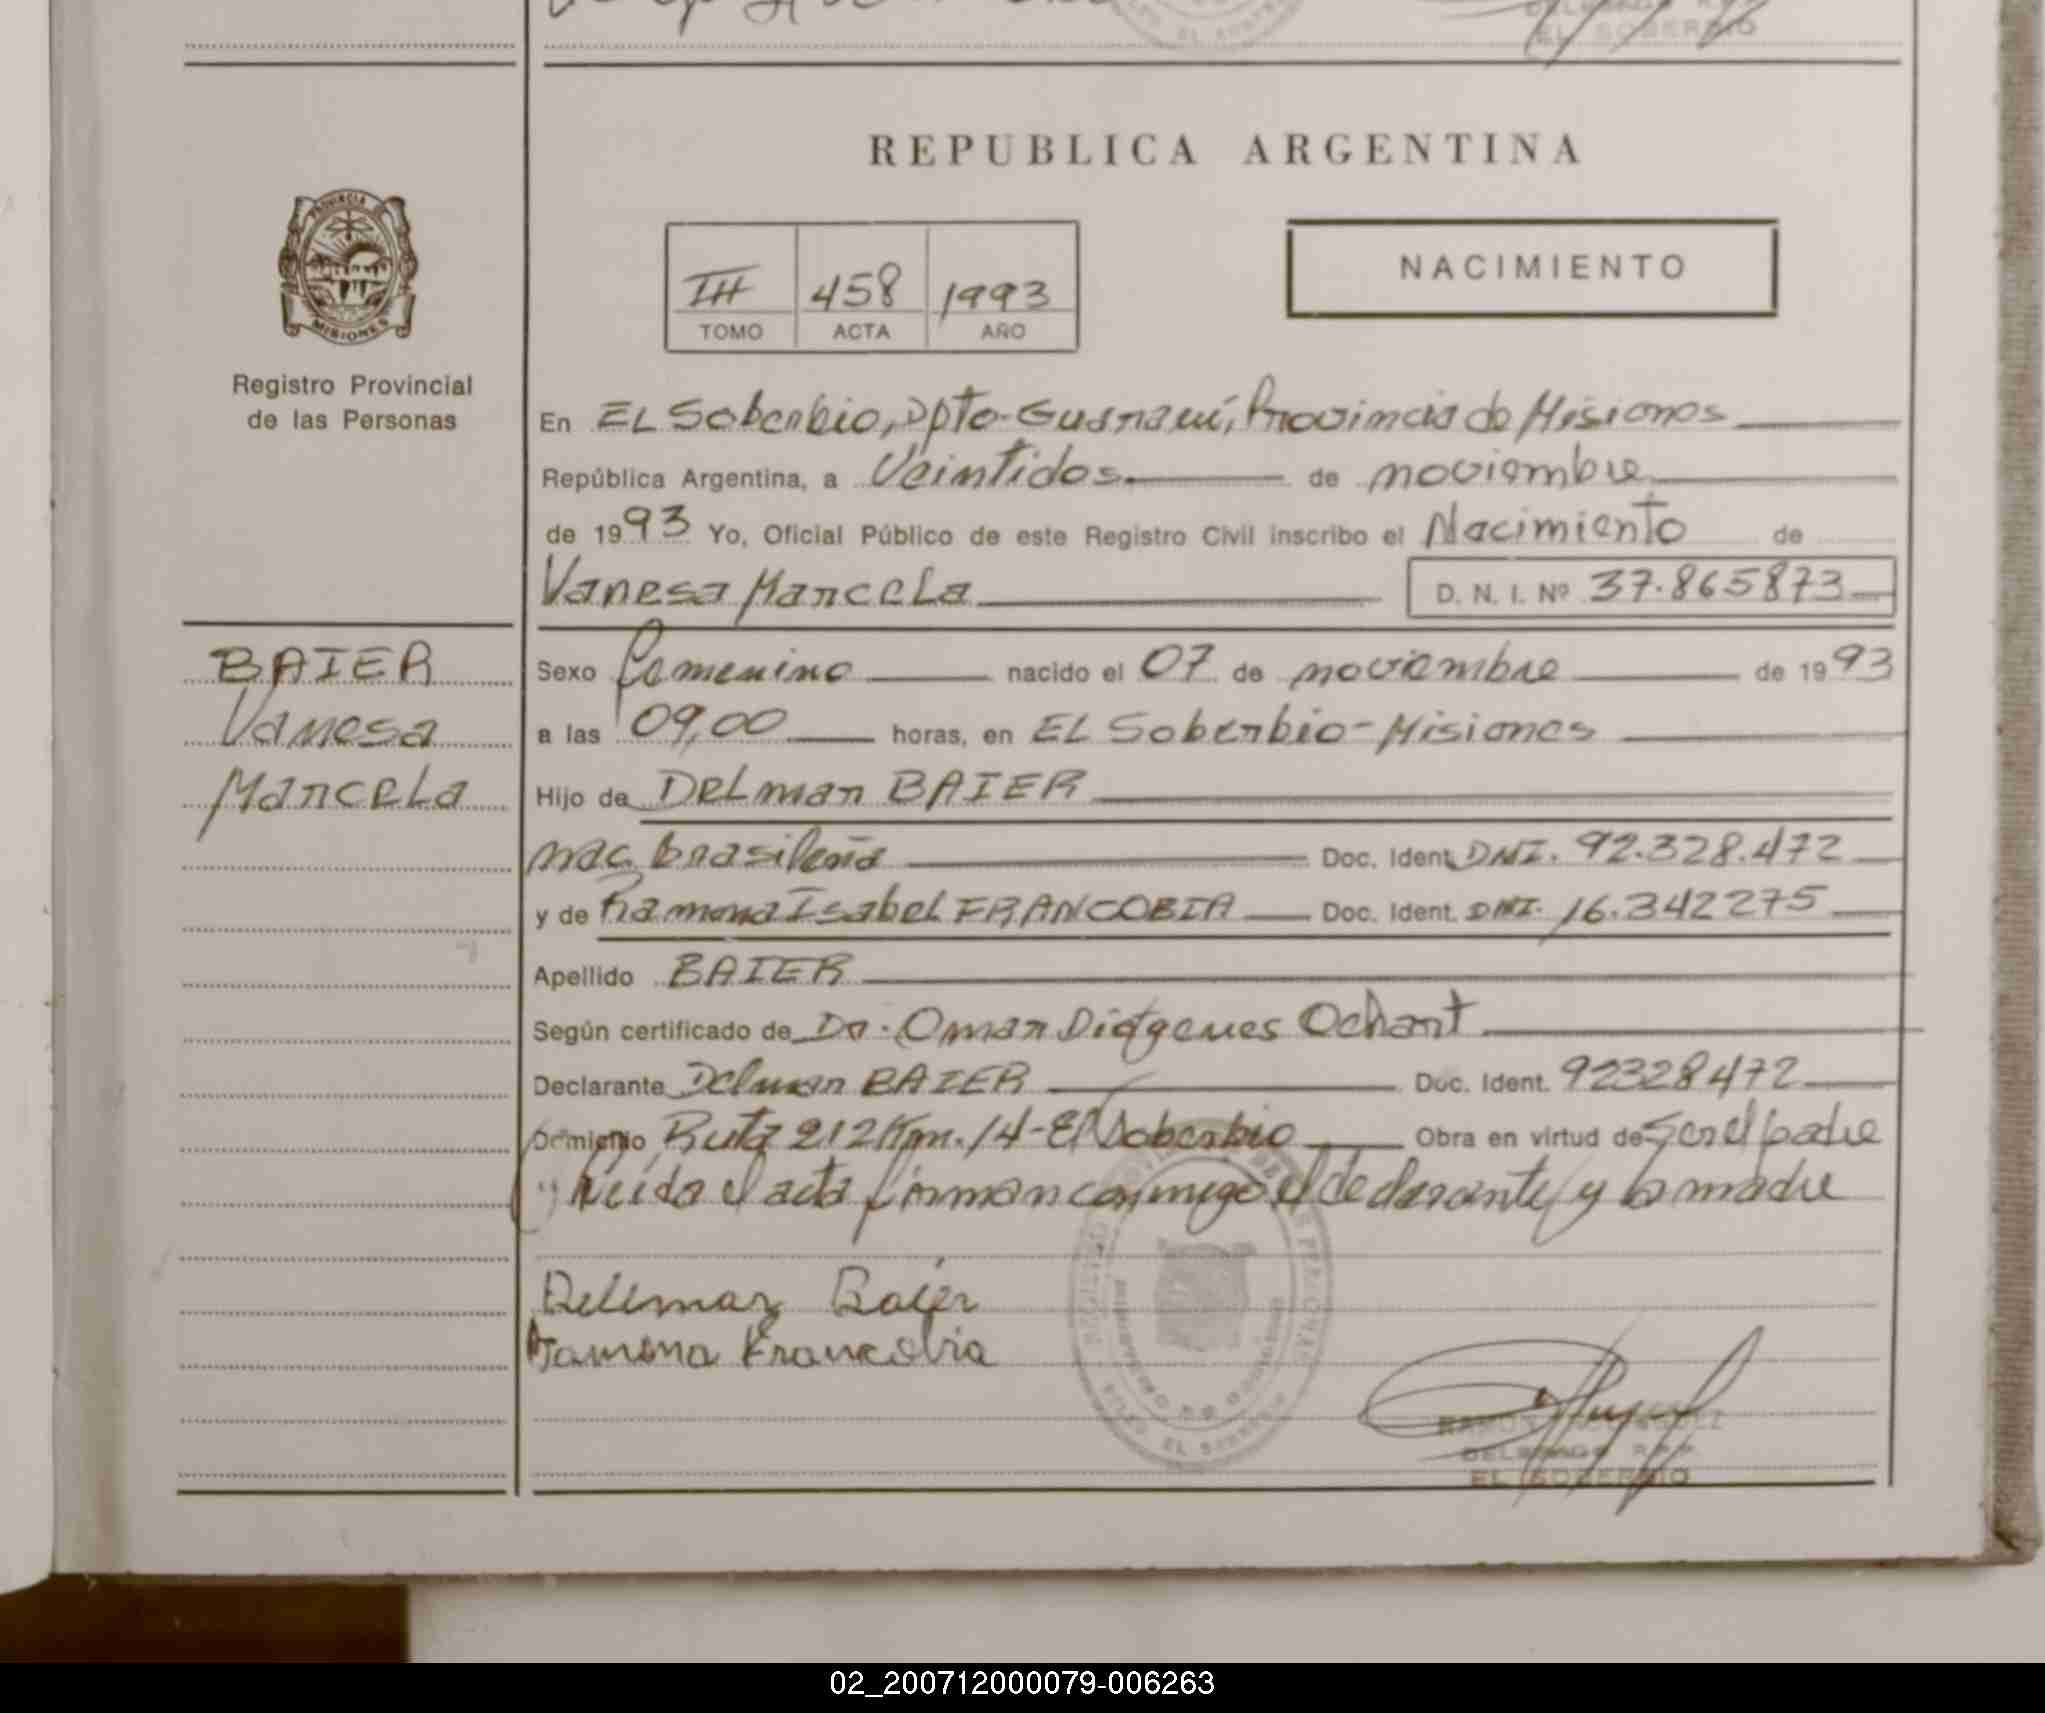 EL SOBERBIO
REPUBLICA ARGENTINA
PROVINCIA DE
MISIONES
Registro Provincial
de las Personas
III 458 1993
TOMO ACTA AÑO
NACIMIENTO
En EL Soberbio, Dpto-Guaraní, Provincia de Misiones
República Argentina, a Veintidos de noviembre
de 1993 Yo, Oficial Público de este Registro Civil inscribo el Nacimiento de
Vanesa Marcela D. N. I. Nº 37.865873
BAIER
Vanesa
Marcela
Sexo femenino nacido el 07 de noviembre de 1993
a las 09,00 horas, en EL Soberbio-Misiones
Hijo de Delmar BAIER
nac. brasileña Doc. Ident. DNI. 92.328.472
y de Ramona Isabel FRANCOBIA Doc. Ident. DNI. 16.342275
Apellido BAIER
Según certificado de Dr. Omar Diógenes Ochart
Declarante Delmar BAIER Doc. Ident. 92328472
Domicilio Ruta 212 Km. 14-El Soberbio Obra en virtud de ser el padre
Leída el acta firman conmigo el declarante y la madre
Dellmar Baier
Ramona Francobia
DELEGADO R.P.P.
EL SOBERBIO
02_200712000079-006263